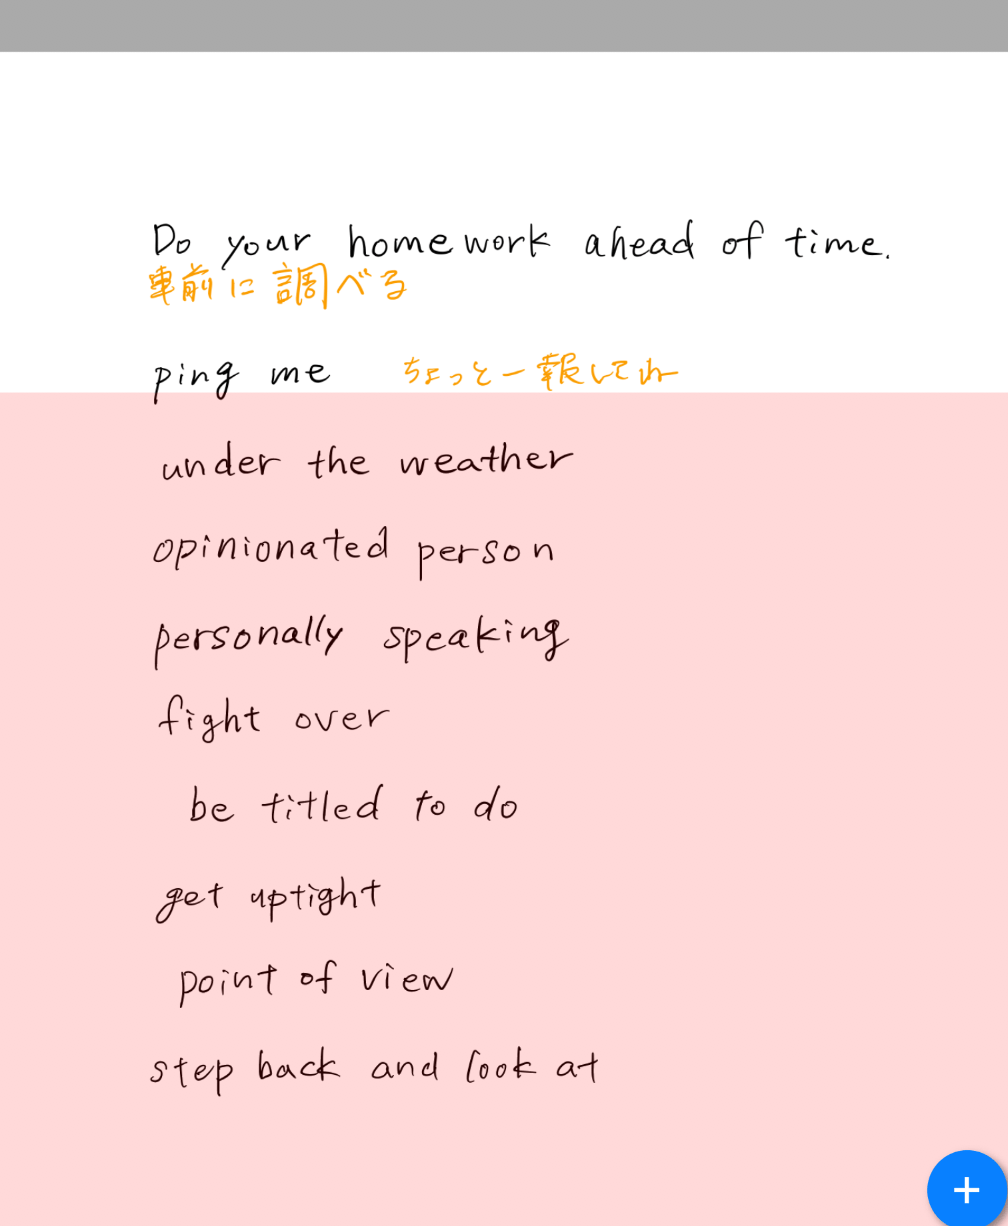 Do your homework ahead of time.
事前に調べる
ping me ちょっと一報してね
under the weather
opinionated person
personally speaking
fight over
be titled to do
get uptight
point of view
step back and look at